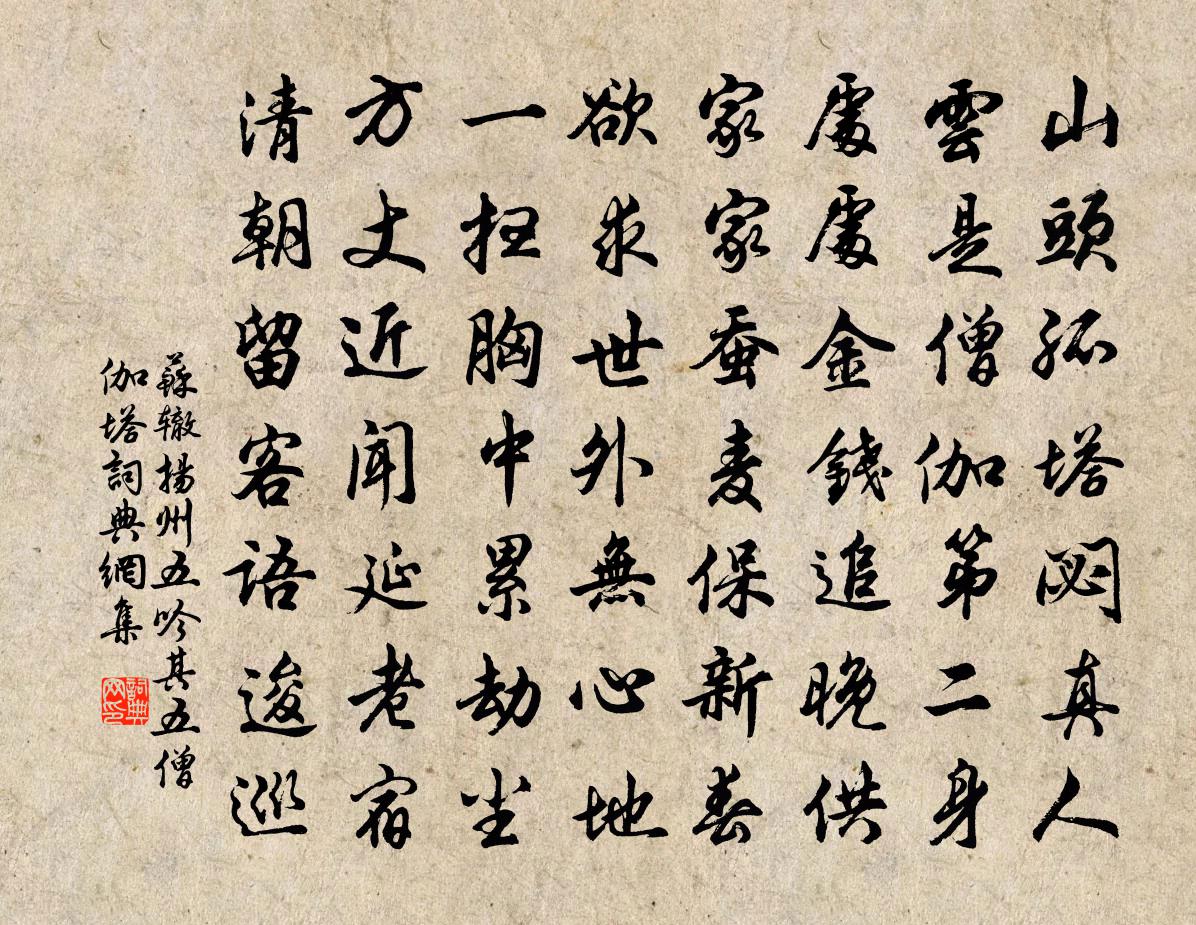 山頭孤塔閟真人
雲是僧伽第二身
處處金錢追晚供
家家蚕麦保新春
欲求世外無心地
一扫胸中累劫尘
方丈近聞延老宿
清朝留客語逡巡
蘇辙揚州五吟其五僧
伽塔詞典網集
詞典
网印